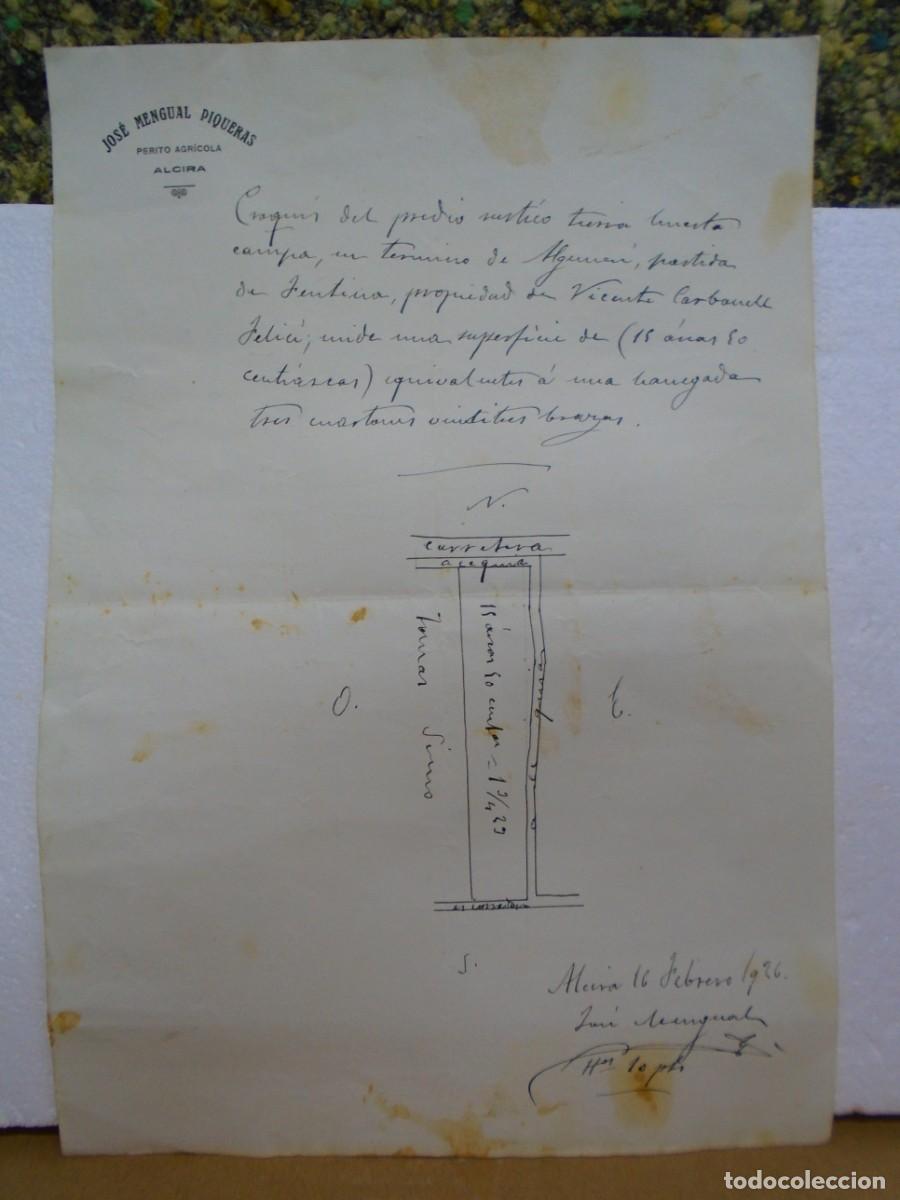 JOSÉ MENGUAL PIQUERAS
PERITO AGRÍCOLA
ALCIRA
Croquis del predio rustico tierra huerta
campa, en termino de Algemesí, partida
de propiedad de Vicente Carbonell
Felici; mide una superficie de (15 áreas 50
centiáreas) equivalentes á una hanegada
tres cuartones veintitres brazas.
N.
carretera
acequia
15 áreas 50 = 1 3/4 23
Tomas Simo
O.
E.
escorredor
S.
Alcira 16 Febrero 1926.
José Mengual
Hos 10 pts
todocoleccion